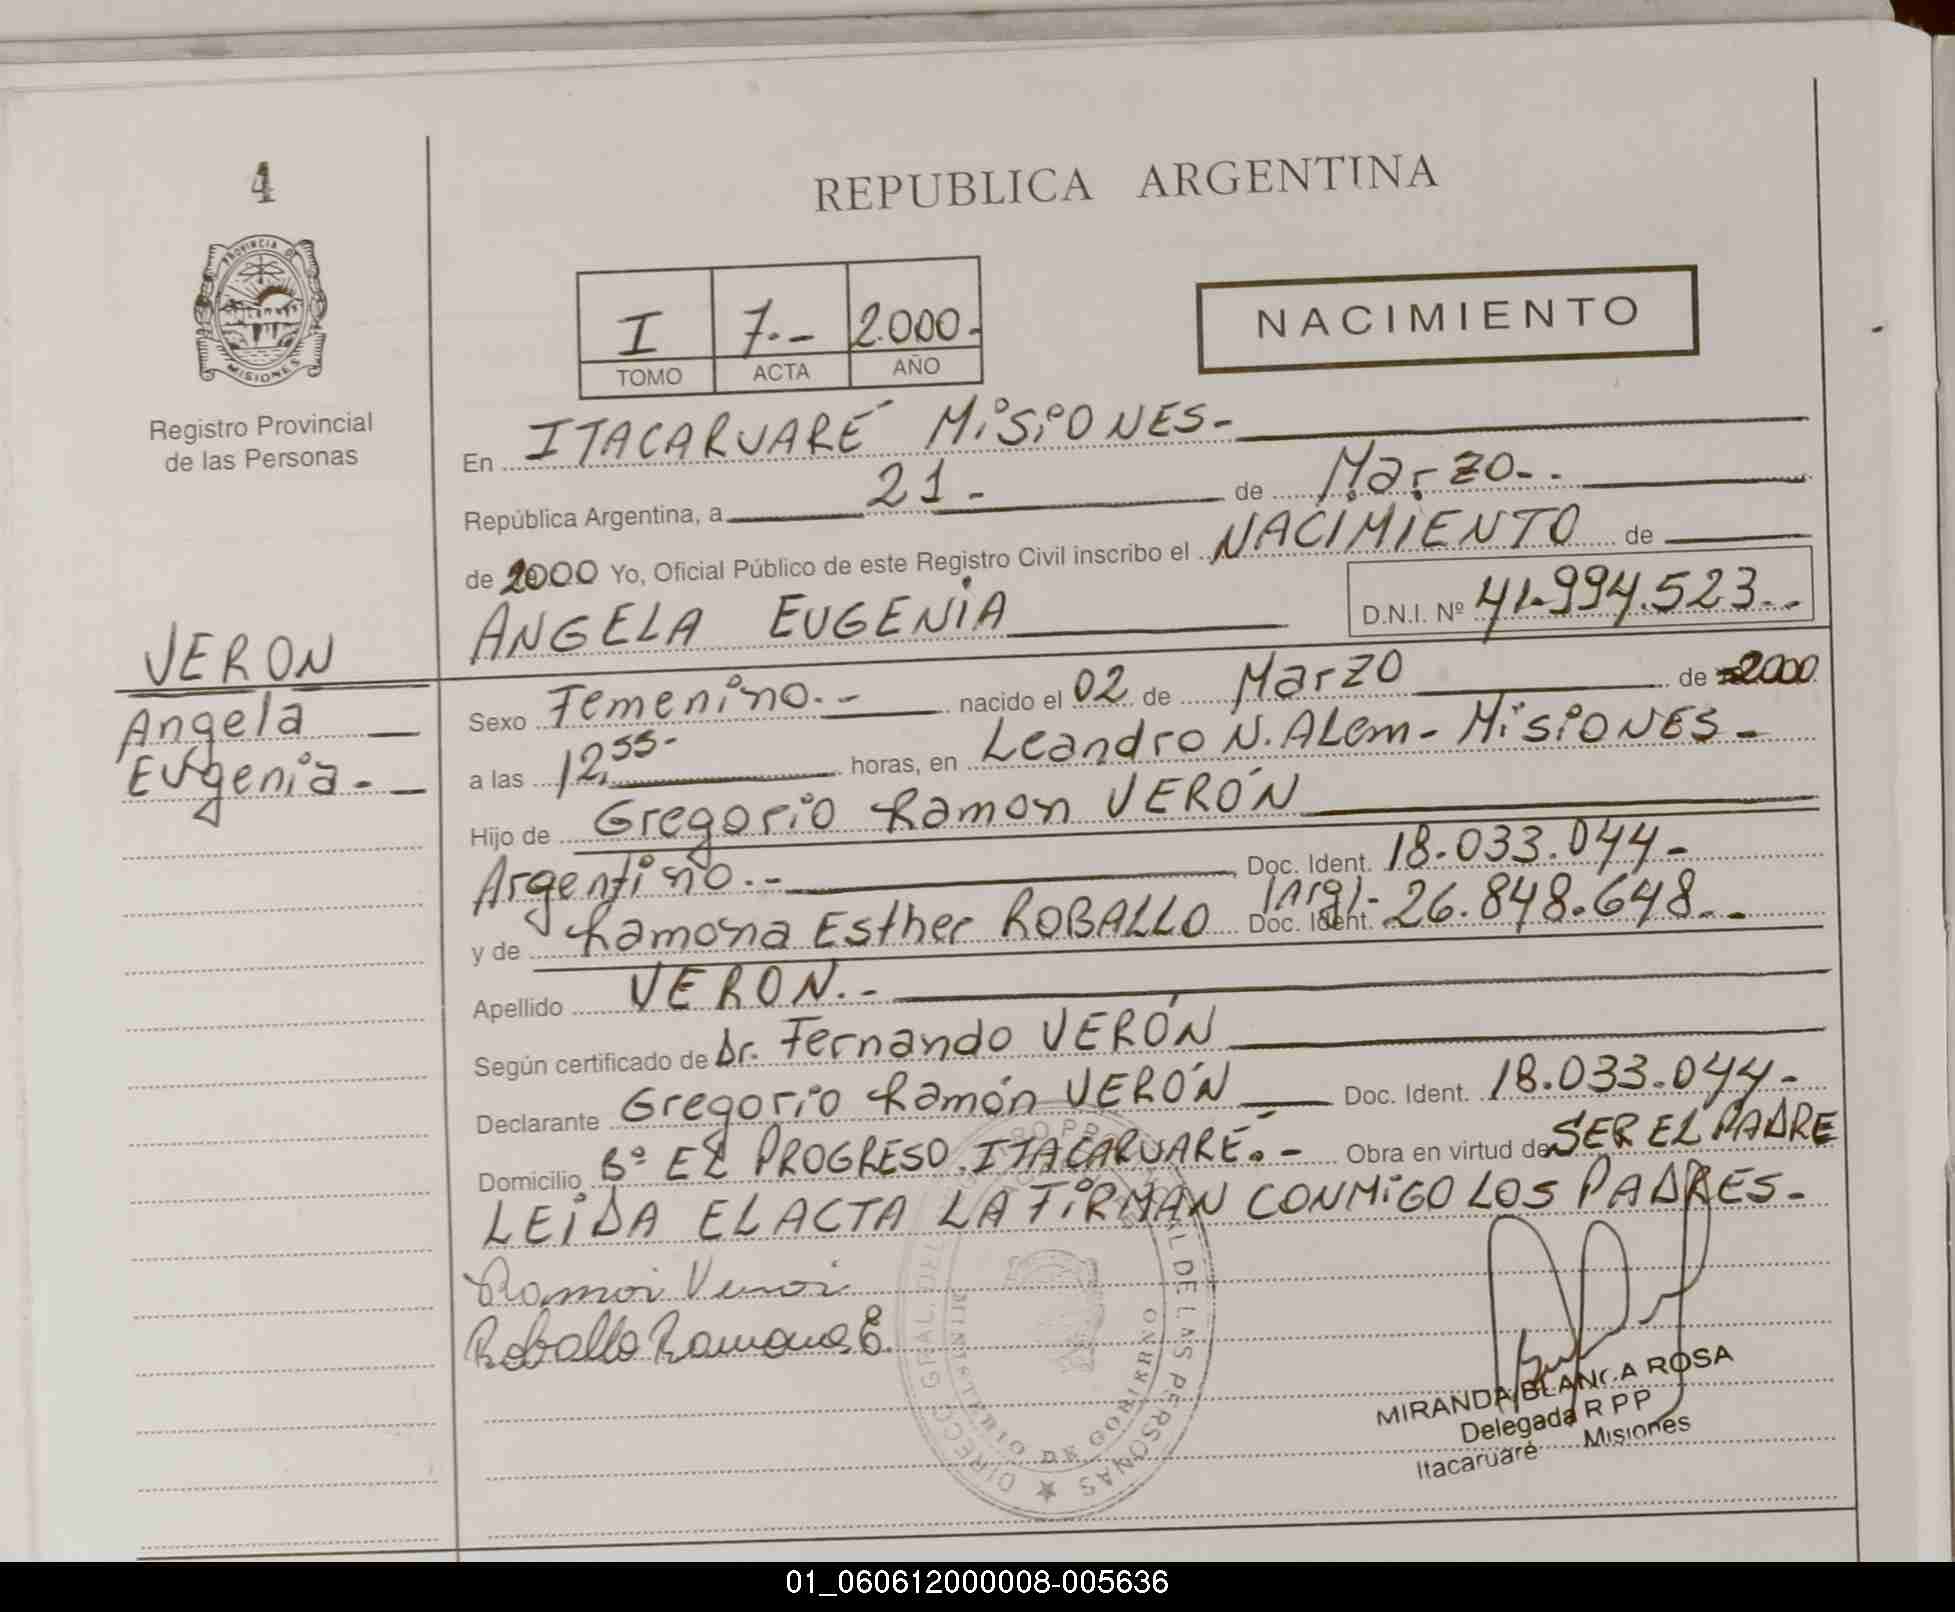 4
PROVINCIA DE
MISIONES
Registro Provincial
de las Personas
VERON
Angela
Eugenia.-
REPUBLICA ARGENTINA
I 7.- 2.000.
TOMO ACTA AÑO
NACIMIENTO
En ITACARUARÉ MiSiONES-
República Argentina, a 21- de Marzo-.
de 2000 Yo, Oficial Público de este Registro Civil inscribo el NACIMIENTO de
ANGELA EUGENiA D.N.I. Nº 41.994.523.-
Sexo Femenino.- nacido el 02 de Marzo de 2000
a las 12,55- horas, en Leandro N. ALem - MiSiONES-
Hijo de Gregorio Ramon VERÓN
Argentino.- Doc. Ident. 18.033.044-
y de Ramona Esther ROBALLO Doc. Ident. (Arg).- 26.848.648.-
Apellido VERON.-
Según certificado de Dr. Fernando VERÓN
Declarante Gregorio Ramón VERÓN Doc. Ident. 18.033.044-
Domicilio Bº EL PROGRESO. ITACARUARÉ.- Obra en virtud de SER EL PADRE
LEiDA EL ACTA LA FiRMAN CONMiGO LOS PADRES-
Ramon Veron
Roballo Ramona E.
DIRECC. GRAL. DEL REGISTRO PROVINCIAL DE LAS PERSONAS
MINISTERIO DE GOBIERNO
MIRANDA BLANCA ROSA
Delegada R P P
Itacaruaré Misiones
01_060612000008-005636